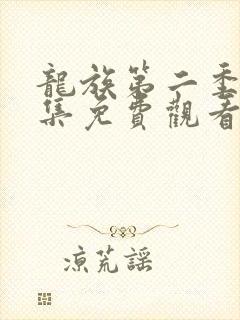 龍族第二季
集免費觀看
涼荒謠